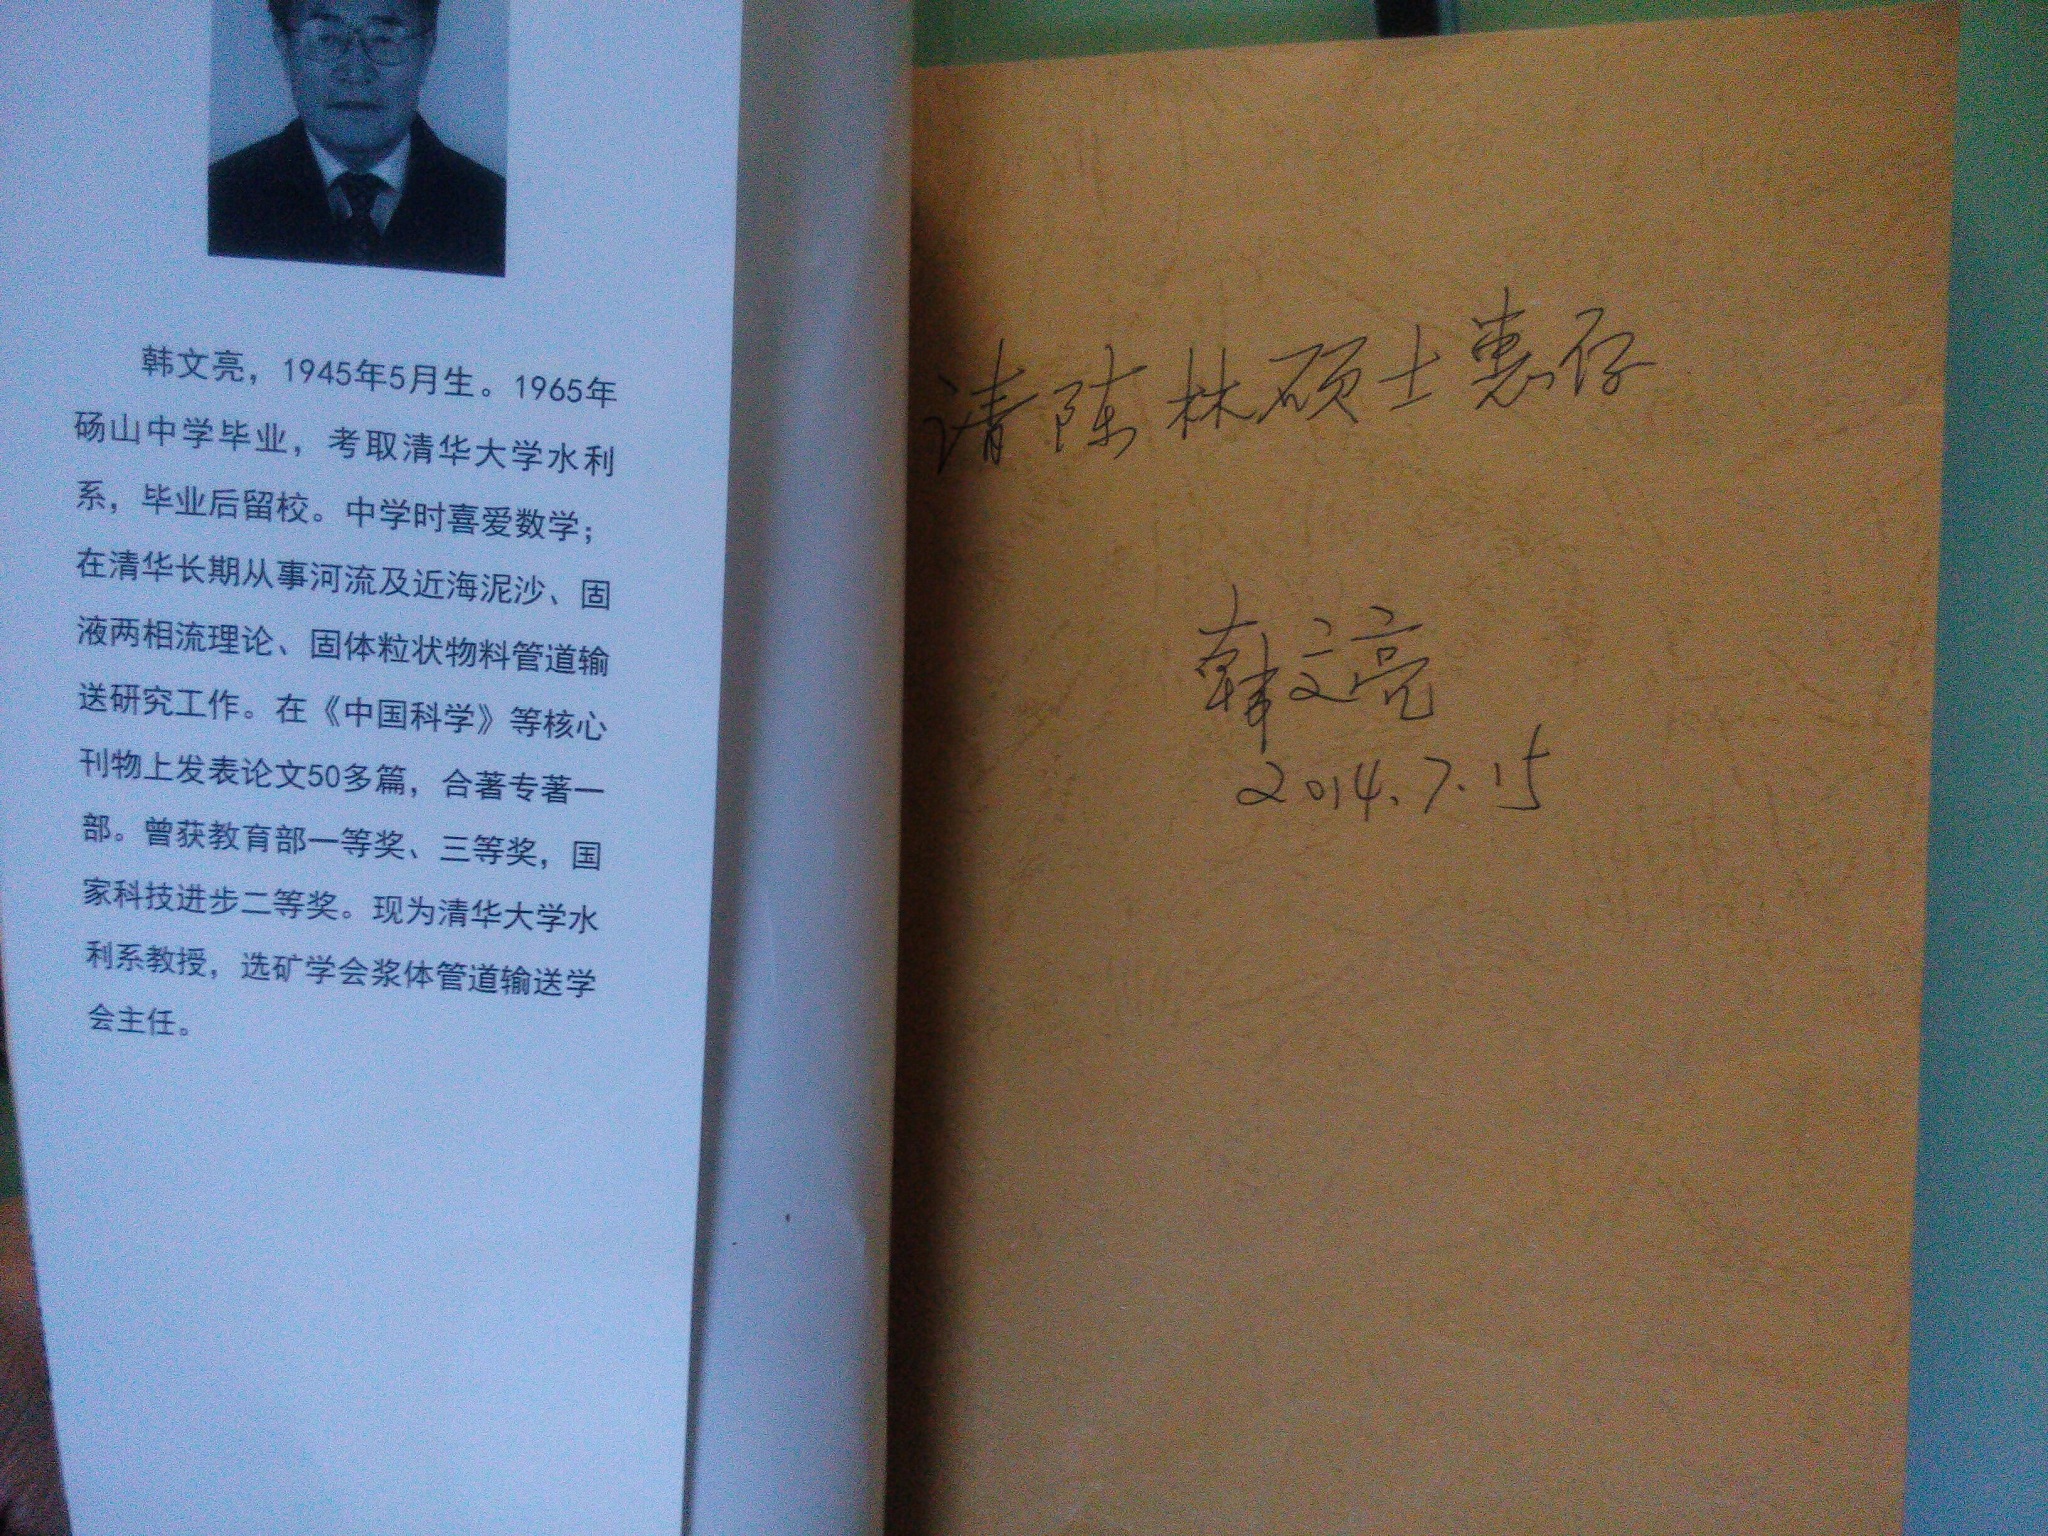 韩文亮，1945年5月生。1965年
砀山中学毕业，考取清华大学水利
系，毕业后留校。中学时喜爱数学；
在清华长期从事河流及近海泥沙、固
液两相流理论、固体粒状物料管道输
送研究工作。在《中国科学》等核心
刊物上发表论文50多篇，合著专著一
部。曾获教育部一等奖、三等奖，国
家科技进步二等奖。现为清华大学水
利系教授，选矿学会浆体管道输送学
会主任。
请陈林硕士惠存
韩文亮
2014.7.15